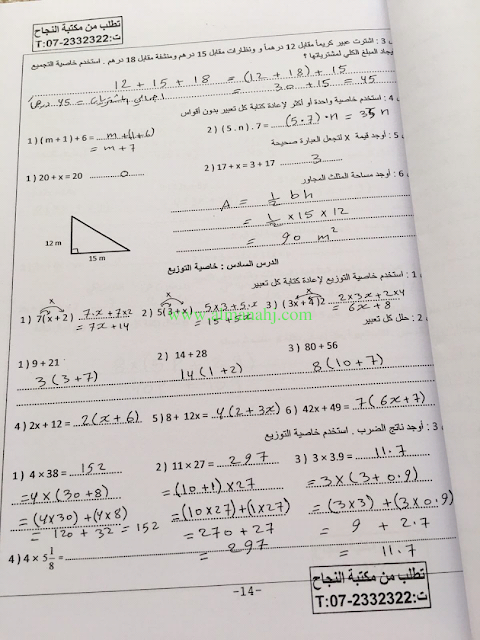 تطلب من مكتبة النجاح
ت:07-2332322:T
3 : اشترت عبير كريماً مقابل 12 درهماً و ونظارات مقابل 15 درهم ومنشفة مقابل 18 درهم . استخدم خاصية التجميع
ايجاد المبلغ الكلي لمشترياتها ؟
12 + 15 + 18 = (12 + 18) + 15
= 30 + 15 = 45
45 درهم
4 : استخدم خاصية واحدة أو أكثر لإعادة كتابة كل تعبير بدون أقواس
1) (m + 1) + 6 = m + (1+6)
= m + 7
2) (5 . n) . 7 = (5·7)·n = 35 n
5 : أوجد قيمة x لتجعل العبارة صحيحة
1) 20 + x = 20 0
2) 17 + x = 3 + 17 3
6 : أوجد مساحة المثلث المجاور
A = 1/2 bh
= 1/2 × 15 × 12
= 90 m²
12 m
15 m
الدرس السادس : خاصية التوزيع
1 : استخدم خاصية التوزيع لإعادة كتابة كل تعبير
1) 7(x + 2) 7·x + 7×2
= 7x + 14
2) 5(3 + x) 5×3 + 5·x
= 15 + 5x
3) (3x + 4)2 2×3x + 2×4
= 6x + 8
www.almanahj.com
2 : حلل كل تعبير
1) 9 + 21
3(3+7)
2) 14 + 28
14(1+2)
3) 80 + 56
8(10+7)
4) 2x + 12 = 2(x+6)
5) 8 + 12x = 4(2+3x)
6) 42x + 49 = 7(6x+7)
3 : أوجد ناتج الضرب . استخدم خاصية التوزيع
1) 4 × 38 = 152
= 4 × (30+8)
= (4×30) + (4×8)
= 120 + 32 = 152
2) 11 × 27 = 297
= (10+1) × 27
= (10×27) + (1×27)
= 270 + 27
= 297
3) 3 × 3.9 = 11.7
= 3 × (3+0.9)
= (3×3) + (3×0.9)
= 9 + 2.7
= 11.7
4) 4 × 5 1/8 =
-14-
تطلب من مكتبة النجاح
ت:07-2332322:T